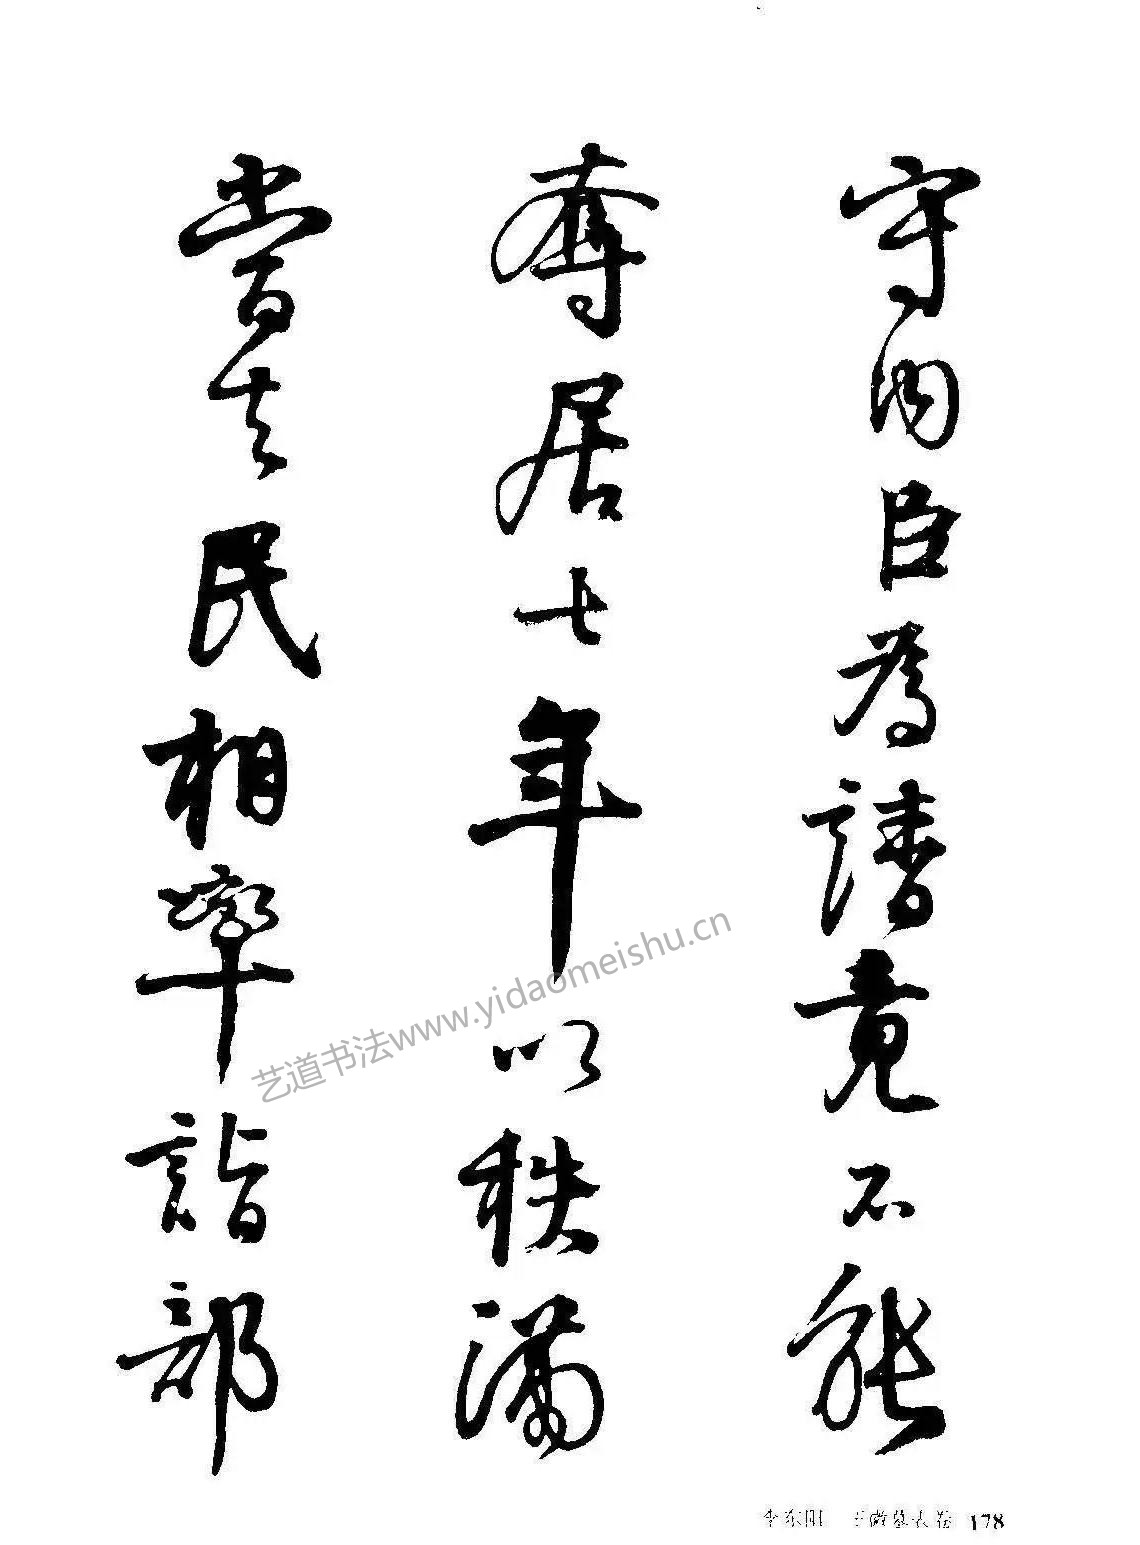 守內臣為請竟不能
奪居七年以秩滿
當去民相率詣部
艺道书法www.yidaomeishu.cn
李东阳 王徽墓表卷 178